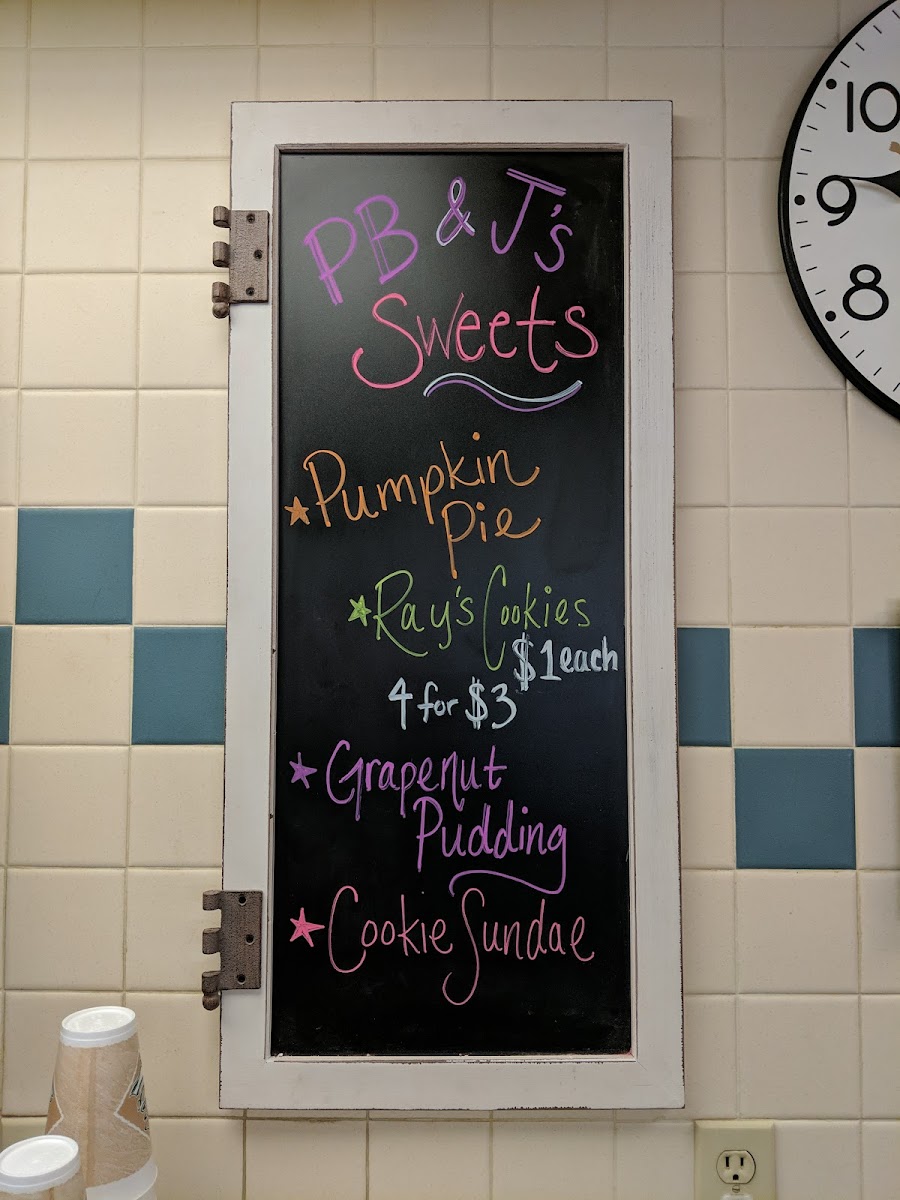 PB & J's
Sweets
Pumpkin
Pie
Ray's Cookies
$1 each
4 for $3
Grapenut
Pudding
Cookie Sundae
10
9
8